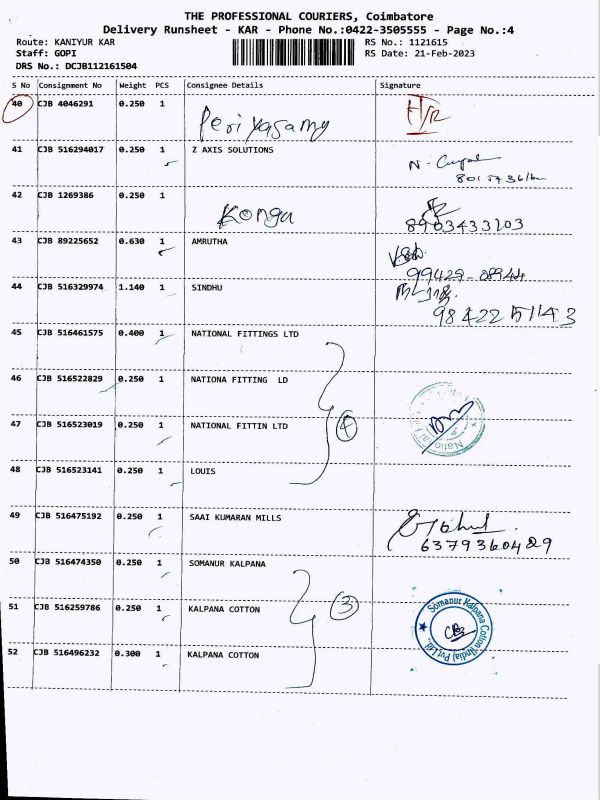 THE PROFESSIONAL COURIERS, Coimbatore
Delivery Runsheet - KAR - Phone No.:0422-3505555 - Page No.:4
Route: KANIYUR KAR
RS No.: 1121615
Staff: GOPI
RS Date: 21-Feb-2023
DRS No.: DCJB112161504
S No Consignment No Weight PCS Consignee Details Signature
40 CJB 4046291 0.250 1 Periyasamy
41 CJB 516294017 0.250 1 Z AXIS SOLUTIONS
42 CJB 1269386 0.250 1 Kongu
8903433203
43 CJB 89225652 0.630 1 AMRUTHA
99429-08944
44 CJB 516329974 1.140 1 SINDHU
98422 51143
45 CJB 516461575 0.400 1 NATIONAL FITTINGS LTD
46 CJB 516522829 0.250 1 NATIONA FITTING LD
47 CJB 516523019 0.250 1 NATIONAL FITTIN LTD 4
48 CJB 516523141 0.250 1 LOUIS
49 CJB 516475192 0.250 1 SAAI KUMARAN MILLS Gokul
6379360429
50 CJB 516474350 0.250 1 SOMANUR KALPANA
51 CJB 516259786 0.250 1 KALPANA COTTON 3
Somanur Kalpana Cotton (India) Pvt. Ltd.
52 CJB 516496232 0.300 1 KALPANA COTTON